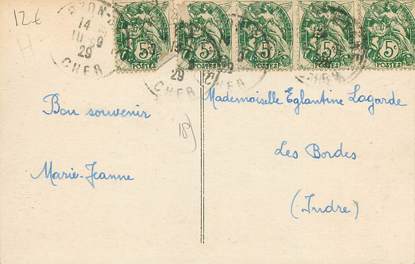 12€
14
10-9
29
CHER
5c
POSTES
5c
POSTES
5c
POSTES
5c
POSTES
5c
POSTES
Bon souvenir
Marie-Jeanne
18)
Mademoiselle Eglantine Lagarde
Les Bordes
(Indre)